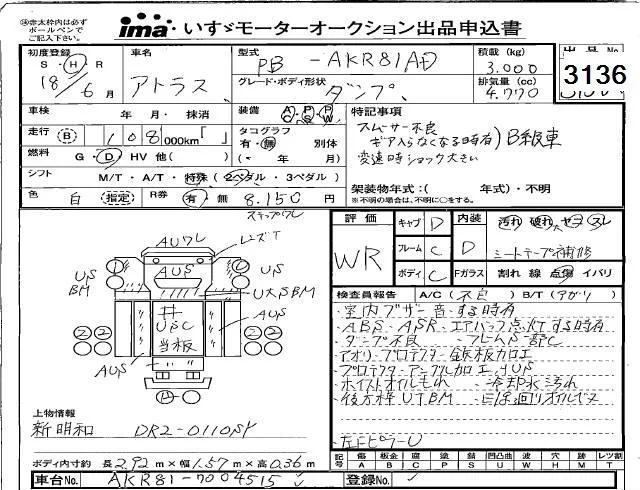 ※赤太枠内は必ず
ボールペンで
ご記入下さい。
ima いすゞモーターオークション出品申込書
初度登録 車名 型式 積載 (kg) 出品No
S・H・R 18/6月 アトラス PB - AKR81AD 3.000 3136
グレード・ボディ形状 ダンプ 排気量 (cc) 4.770
車検 年 月・抹消 装備 AC PS PW 特記事項
走行 B 108,000km「 」 タコグラフ 有・無 別体 スムーサー不良
ギア入らなくなる時有 B級車
変速時ショック大きい
燃料 G・D・HV 他( ) (・ 年 月)
シフト M/T・A/T・特殊(2ペダル・3ペダル) 架装物年式:( 年式)・不明
色 白 (指定) R券 有・無 8.150 円 ※不明の場合は、不明に○をする。
ステップワレ
AUワレ レンズT
評価 WR
キャブ D 内装 D 汚れ 破れ ヤコゲ スレ
フレーム C シートテープ補修
ボディ C Fガラス 割れ 線 点傷 イバリ
US BM AUS US
USBM
井 USC 当板 AUS
AUS
検査員報告 A/C (不良) B/T (アガリ)
・室内ブザー音する時有
・ABS・ASR・エアバッグ点灯する時有
・ダンプ不良 ・フレームS一部C
・アオリ・プロテクター鉄板加工
・プロテクターアングル加工、USUS
・ホイストオイルもれ ・冷却水汚れ
・後方枠UTBM
・左ににピラーU
上物情報
新明和 DR2-0110SK
ボディ内寸約 長2.92m×幅1.57m×高0.36m
傷 板金 腐 塗 錆 凹凸曲 波 穴 跡 レツ割
A B C P S U W H M T
車台No. AKR81-7004515 登録No.